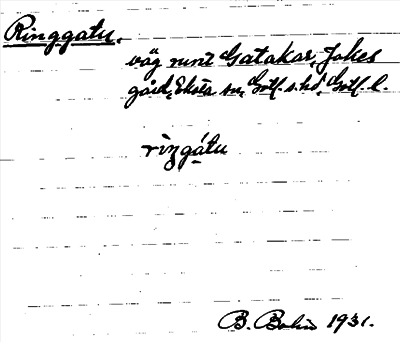 Ringgatu.
väg runt Gatakar, Jakes
gård, Eksta sn, Gotl. s. hd, Gotl. l.
ringátu
B. Bolin 1931.